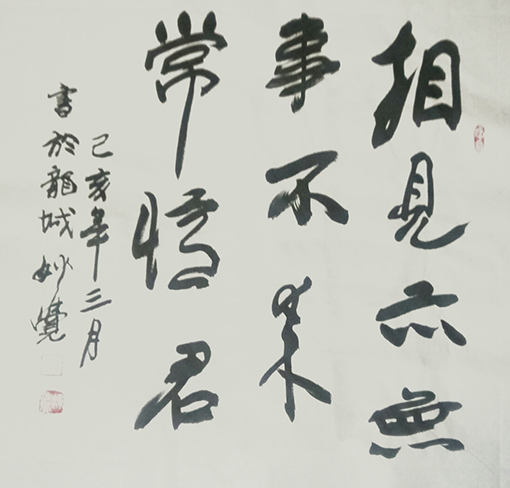 相見亦無
事不来
常憶君
己亥年三月
書於龍城妙覺